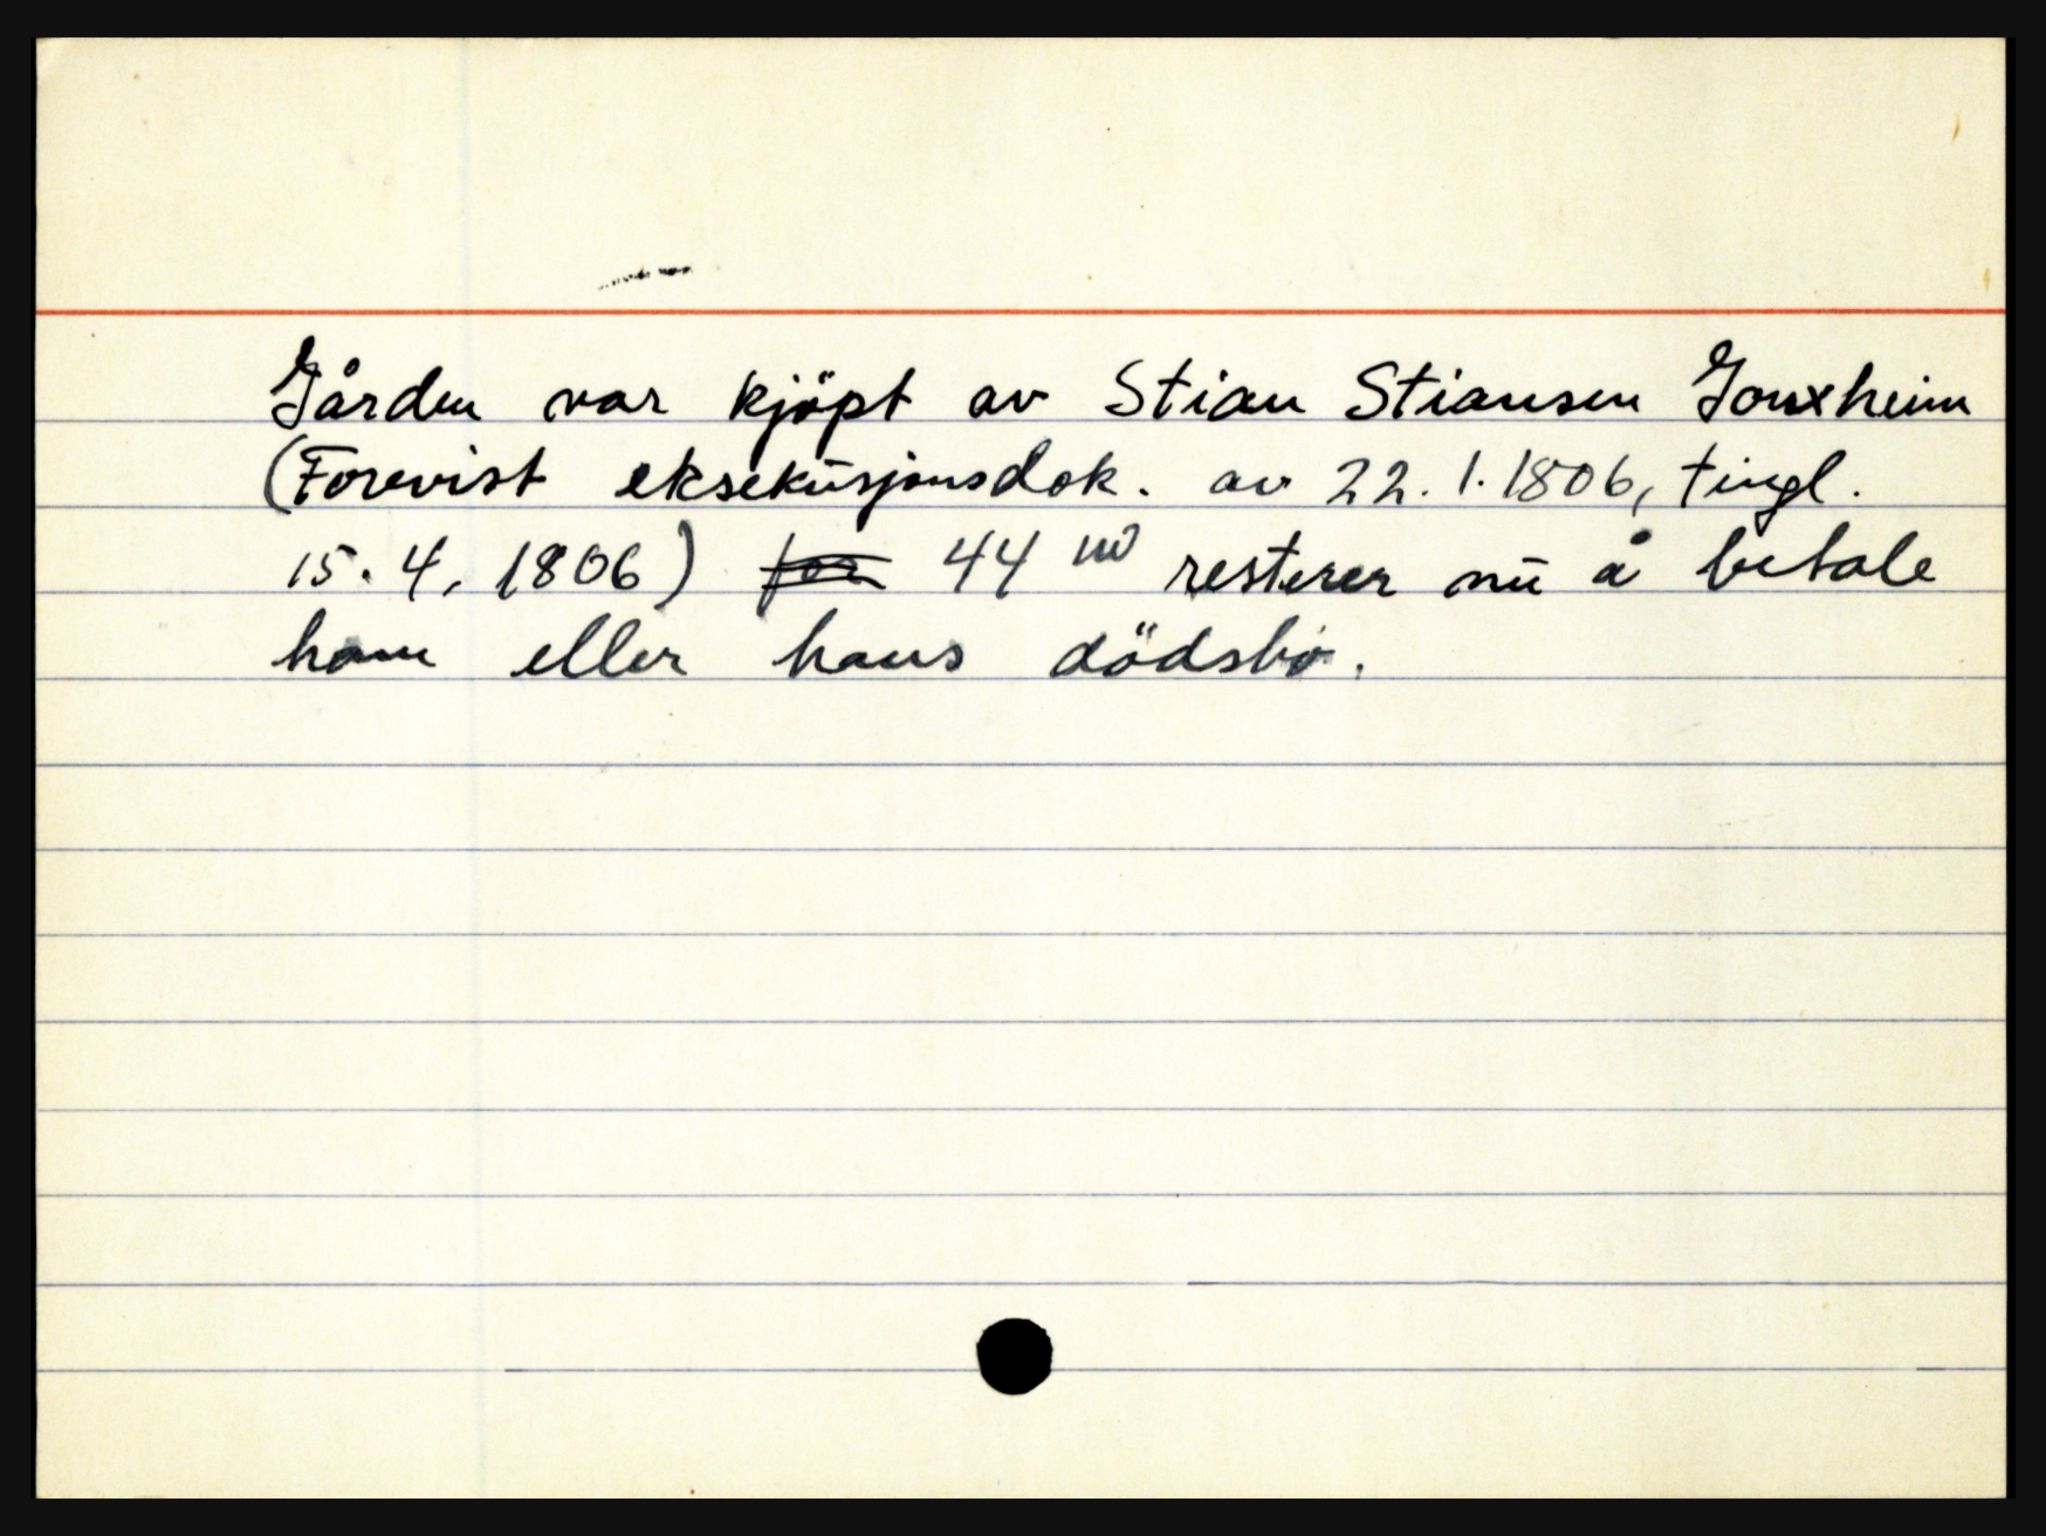 Gården var kjöpt av Stian Stiansen
(Forevist eksekusjonsdok. av 22.1.1806, tingl.
15.4.1806) ~~for~~ 44 resterer nu å betale
ham eller hans dödsbo.